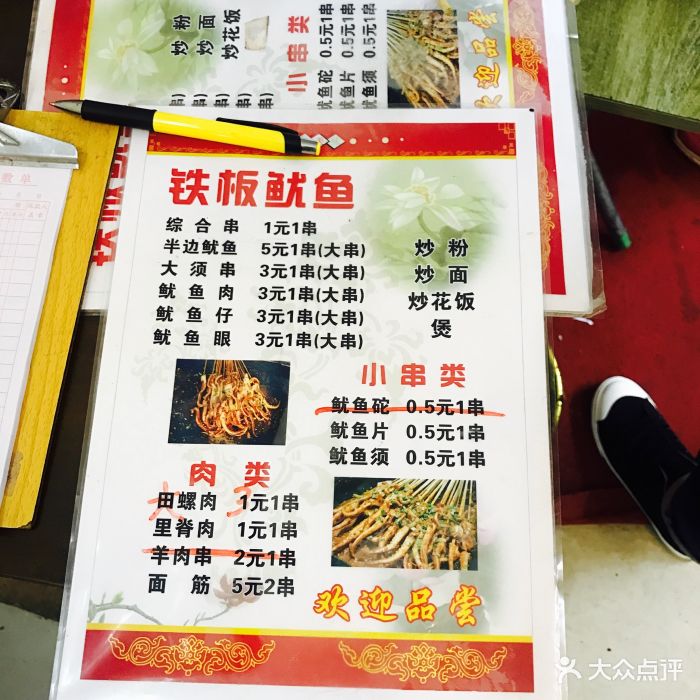 炒粉
炒面
炒花饭
小串类
鱿鱼砣 0.5元1串
鱿鱼片 0.5元1串
鱿鱼须 0.5元1串
欢迎品尝
数单
铁板鱿鱼
综合串 1元1串
半边鱿鱼 5元1串(大串)
大须串 3元1串(大串)
鱿鱼肉 3元1串(大串)
鱿鱼仔 3元1串(大串)
鱿鱼眼 3元1串(大串)
炒粉
炒面
炒花饭
煲
小串类
鱿鱼砣 0.5元1串
鱿鱼片 0.5元1串
鱿鱼须 0.5元1串
肉类
田螺肉 1元1串
里脊肉 1元1串
羊肉串 2元1串
面筋 5元2串
欢迎品尝
大众点评